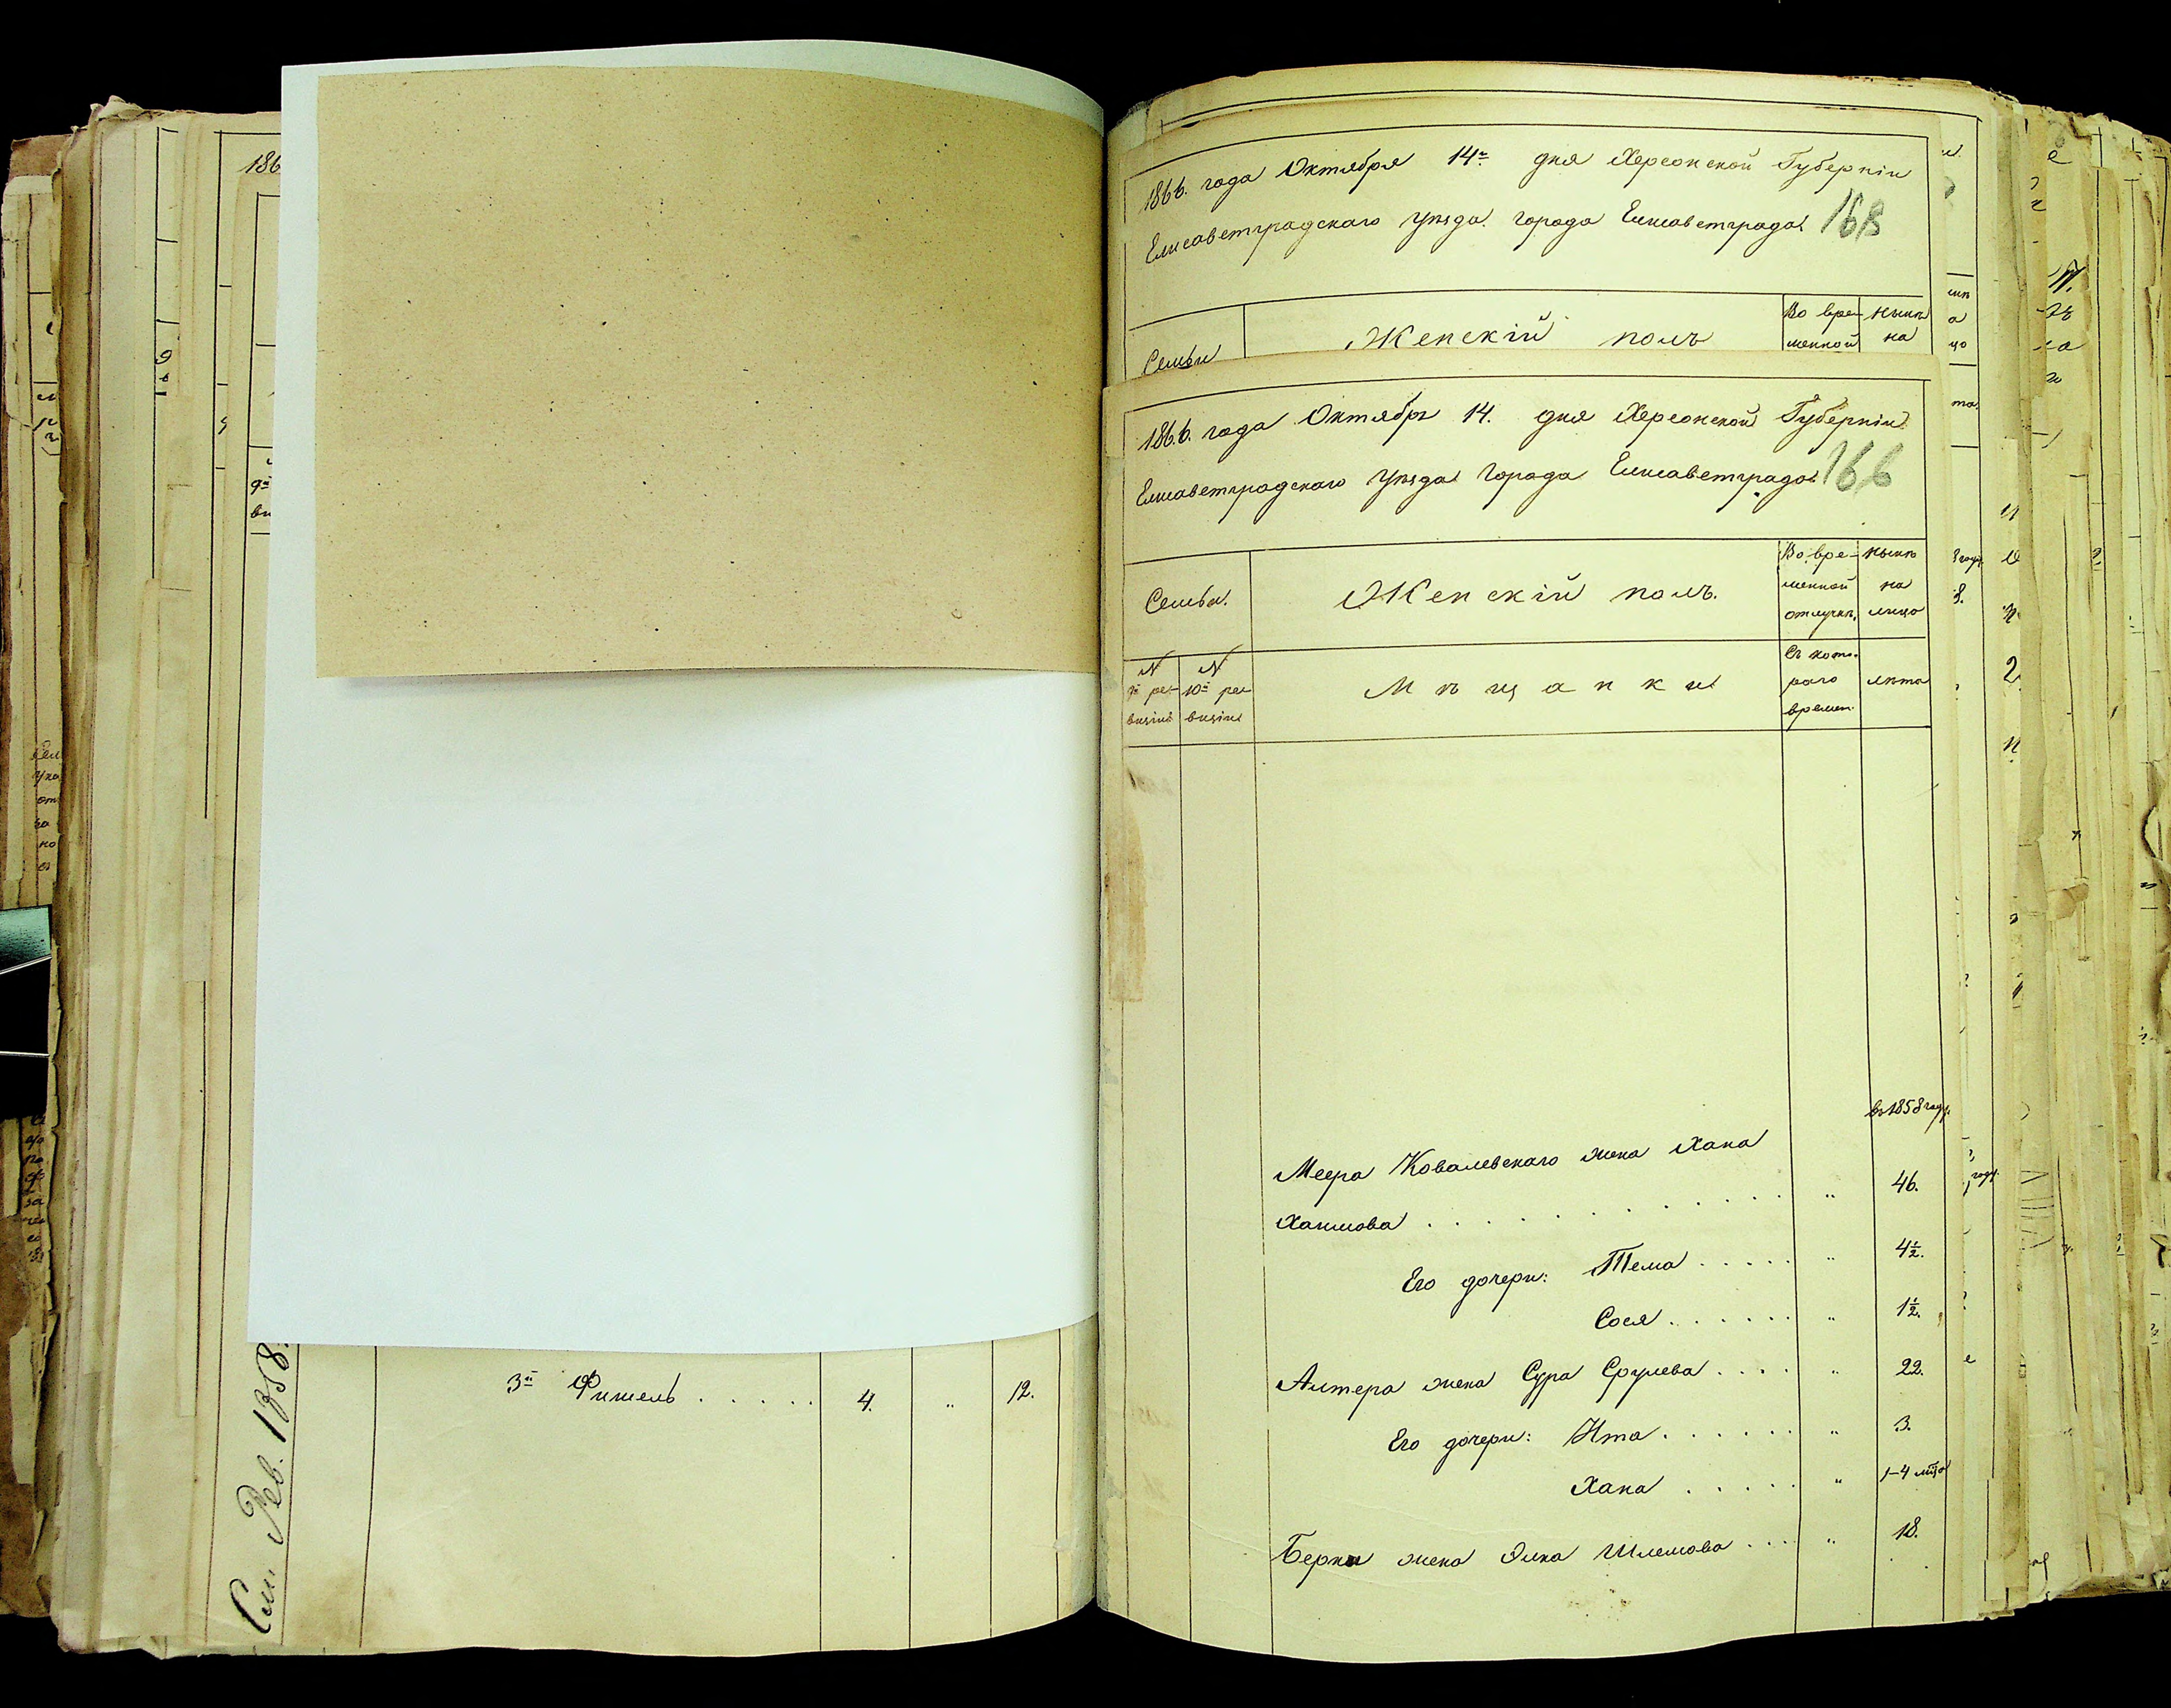 186
См. Рев. 1858.
3й Фишель . . . . . 4. " 12.
1866. года Октября 14го дня Херсонской Губерніи
Елисаветградскаго Уѣзда. Города Елисаветграда. 168
Семьи
Женскій полъ
Во вре-
менной
нынѣ
на
1866. года Октября 14. дня Херсонской Губерніи
Елисаветградскаго Уѣзда Города Елисаветграда. 166
Семьи.
Женскій полъ.
Во вре-
менной
отлучкѣ,
нынѣ
на
лицо
№
9й ре-
визіи
№
10й ре-
визіи
Мѣщанки
Съ кото-
раго
времен.
лѣта
въ 1858 году.
Меера Ковалевскаго жена Хана
Хаимова . . . . . . . . . " 46.
Его дочери: Тема . . . . . " 4½.
Сося . . . . . . " 1½.
Алтера жена Сура Срулева . . . . " 22.
Его дочери: Ита . . . . . . " 3.
Хана . . . . . " 1-4 мѣца
Берки жена Элка Шлемова . . . . " 18.